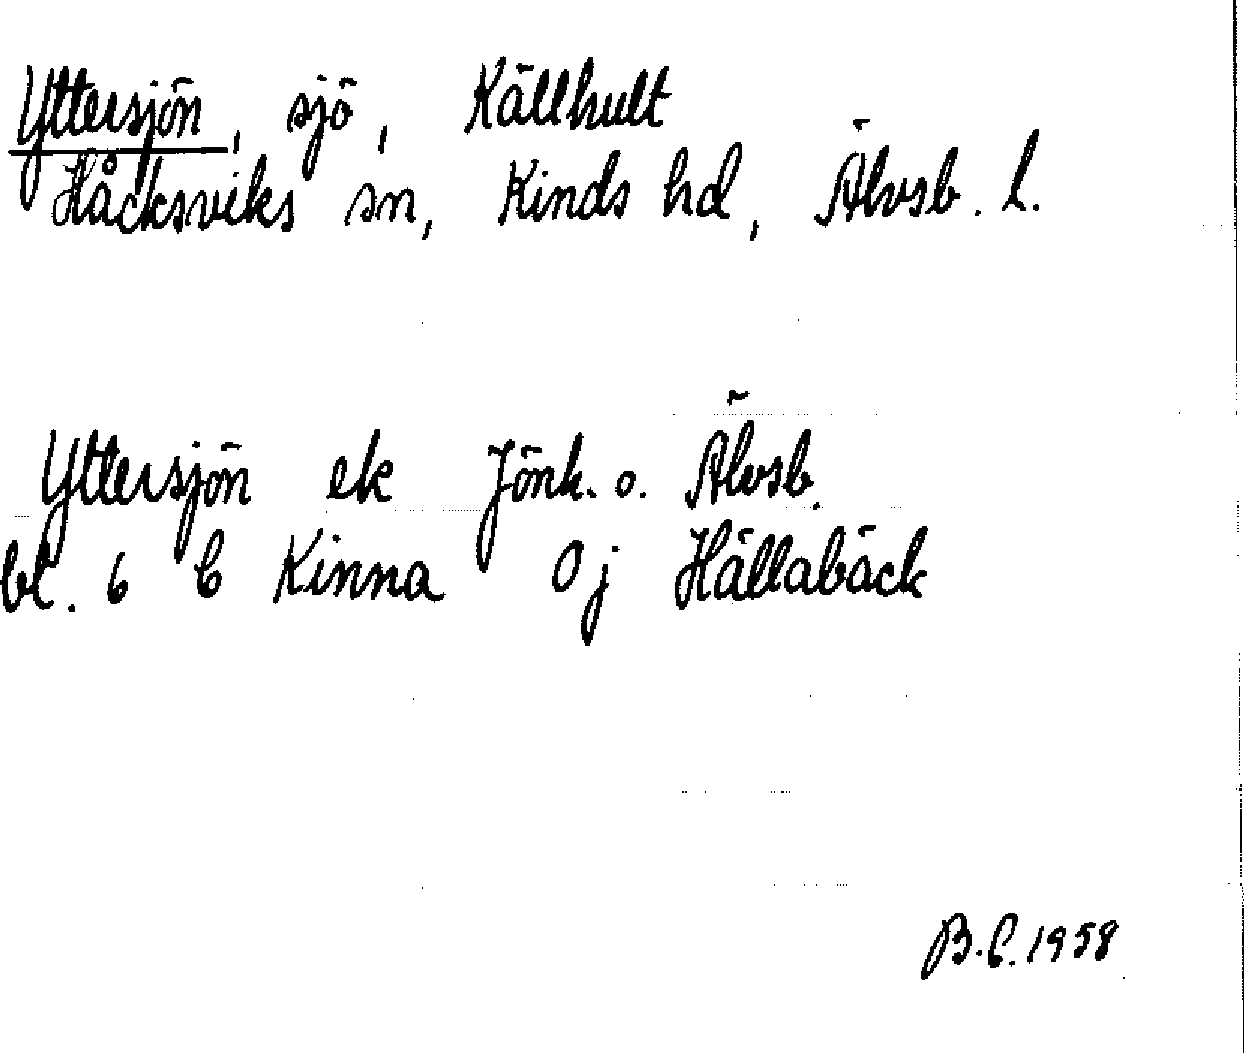 Yttersjön, sjö, Källhult
Håcksviks sn, Kinds hd, Älvsb. l.
Yttersjön ek Jönk. o. Älvsb.
bl. 6 C Kinna 0j Hällabäck
B.C. 1958